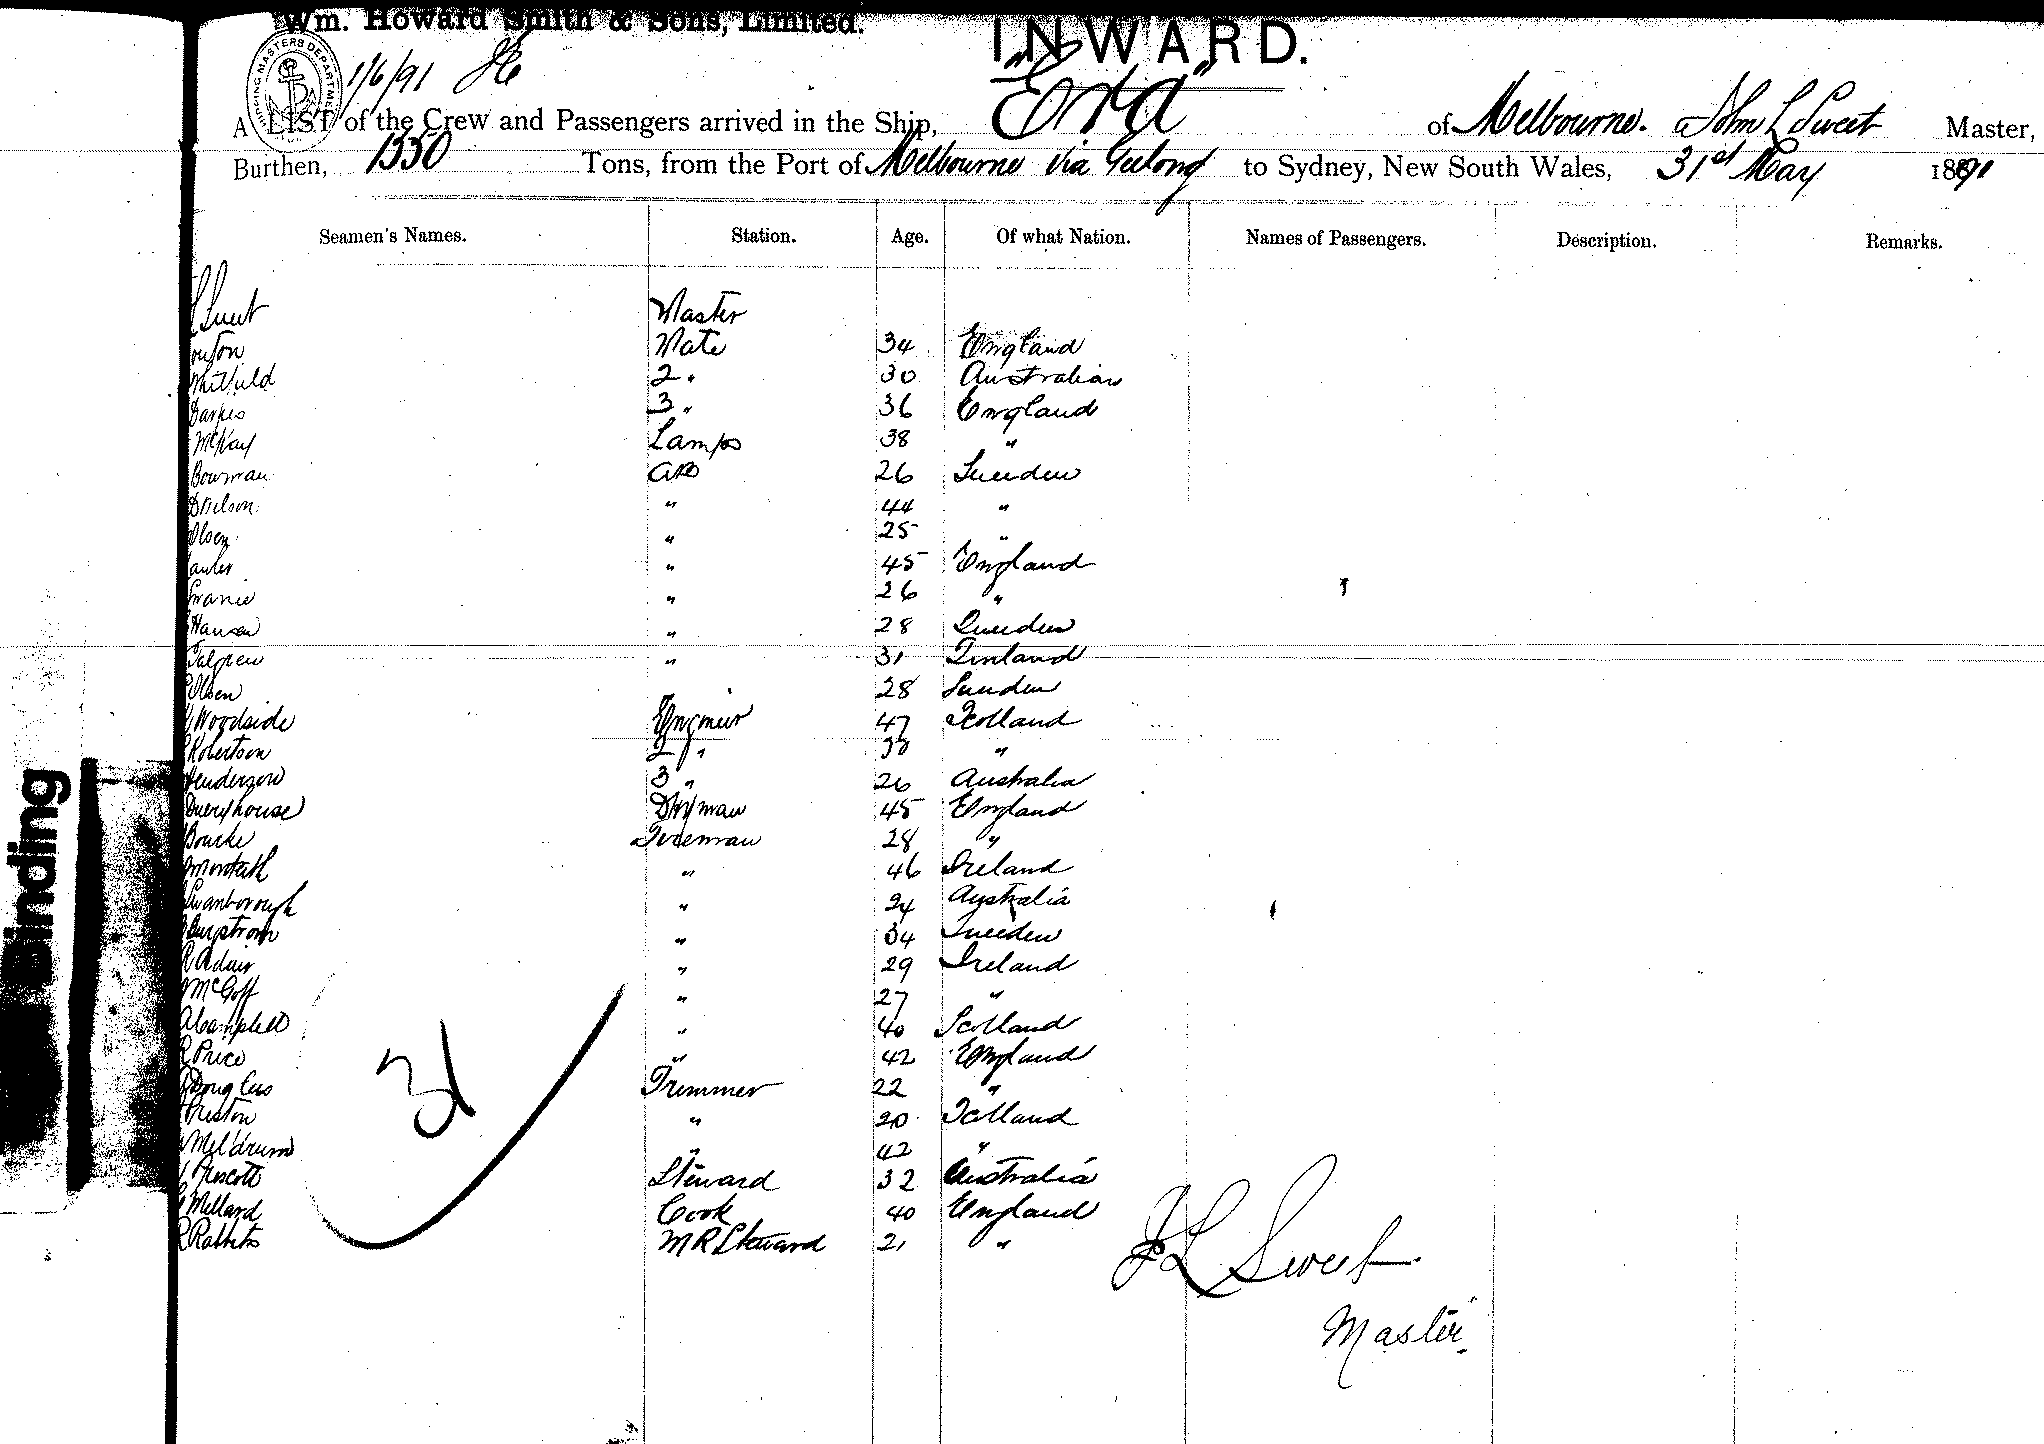 Wm. Howard Smith & Sons, Limited.
INWARD.
1/6/91
A LIST of the Crew and Passengers arrived in the Ship, "Era" of Melbourne. John L Sweet Master,
Burthen, 1550 Tons, from the Port of Melbourne via Geelong to Sydney, New South Wales, 31st May 1891
Seamen's Names. Station. Age. Of what Nation. Names of Passengers. Description. Remarks.
L Sweet Master
Mate 34 England
Whitfield 2 " 30 Australian
3 " 36 England
McKay Lamps 38 "
Bowman AB 26 Sweden
" 44 "
Olsen " 25 "
" 45 England
" 26 "
Hansen " 28 Sweden
" 31 Finland
Olsen " 28 Sweden
Woodside Engineer 47 Scotland
Robertson 2 " 38 "
Henderson 3 " 26 Australia
Dkyman 45 England
Bourke Fireman 28 "
Monteith " 46 Ireland
Swanborough " 24 Australia
" 34 Sweden
R Adair " 29 Ireland
McGoff " 27 "
A Campbell " 40 Scotland
R Price " 42 England
Douglas Trimmer 22 "
Preston " 20 Scotland
Meldrum " 42 "
Prescott Steward 32 Australia
Millard Cook 40 England
R Rabbits M R Steward 21 "
31
J L Sweet
Master
Binding